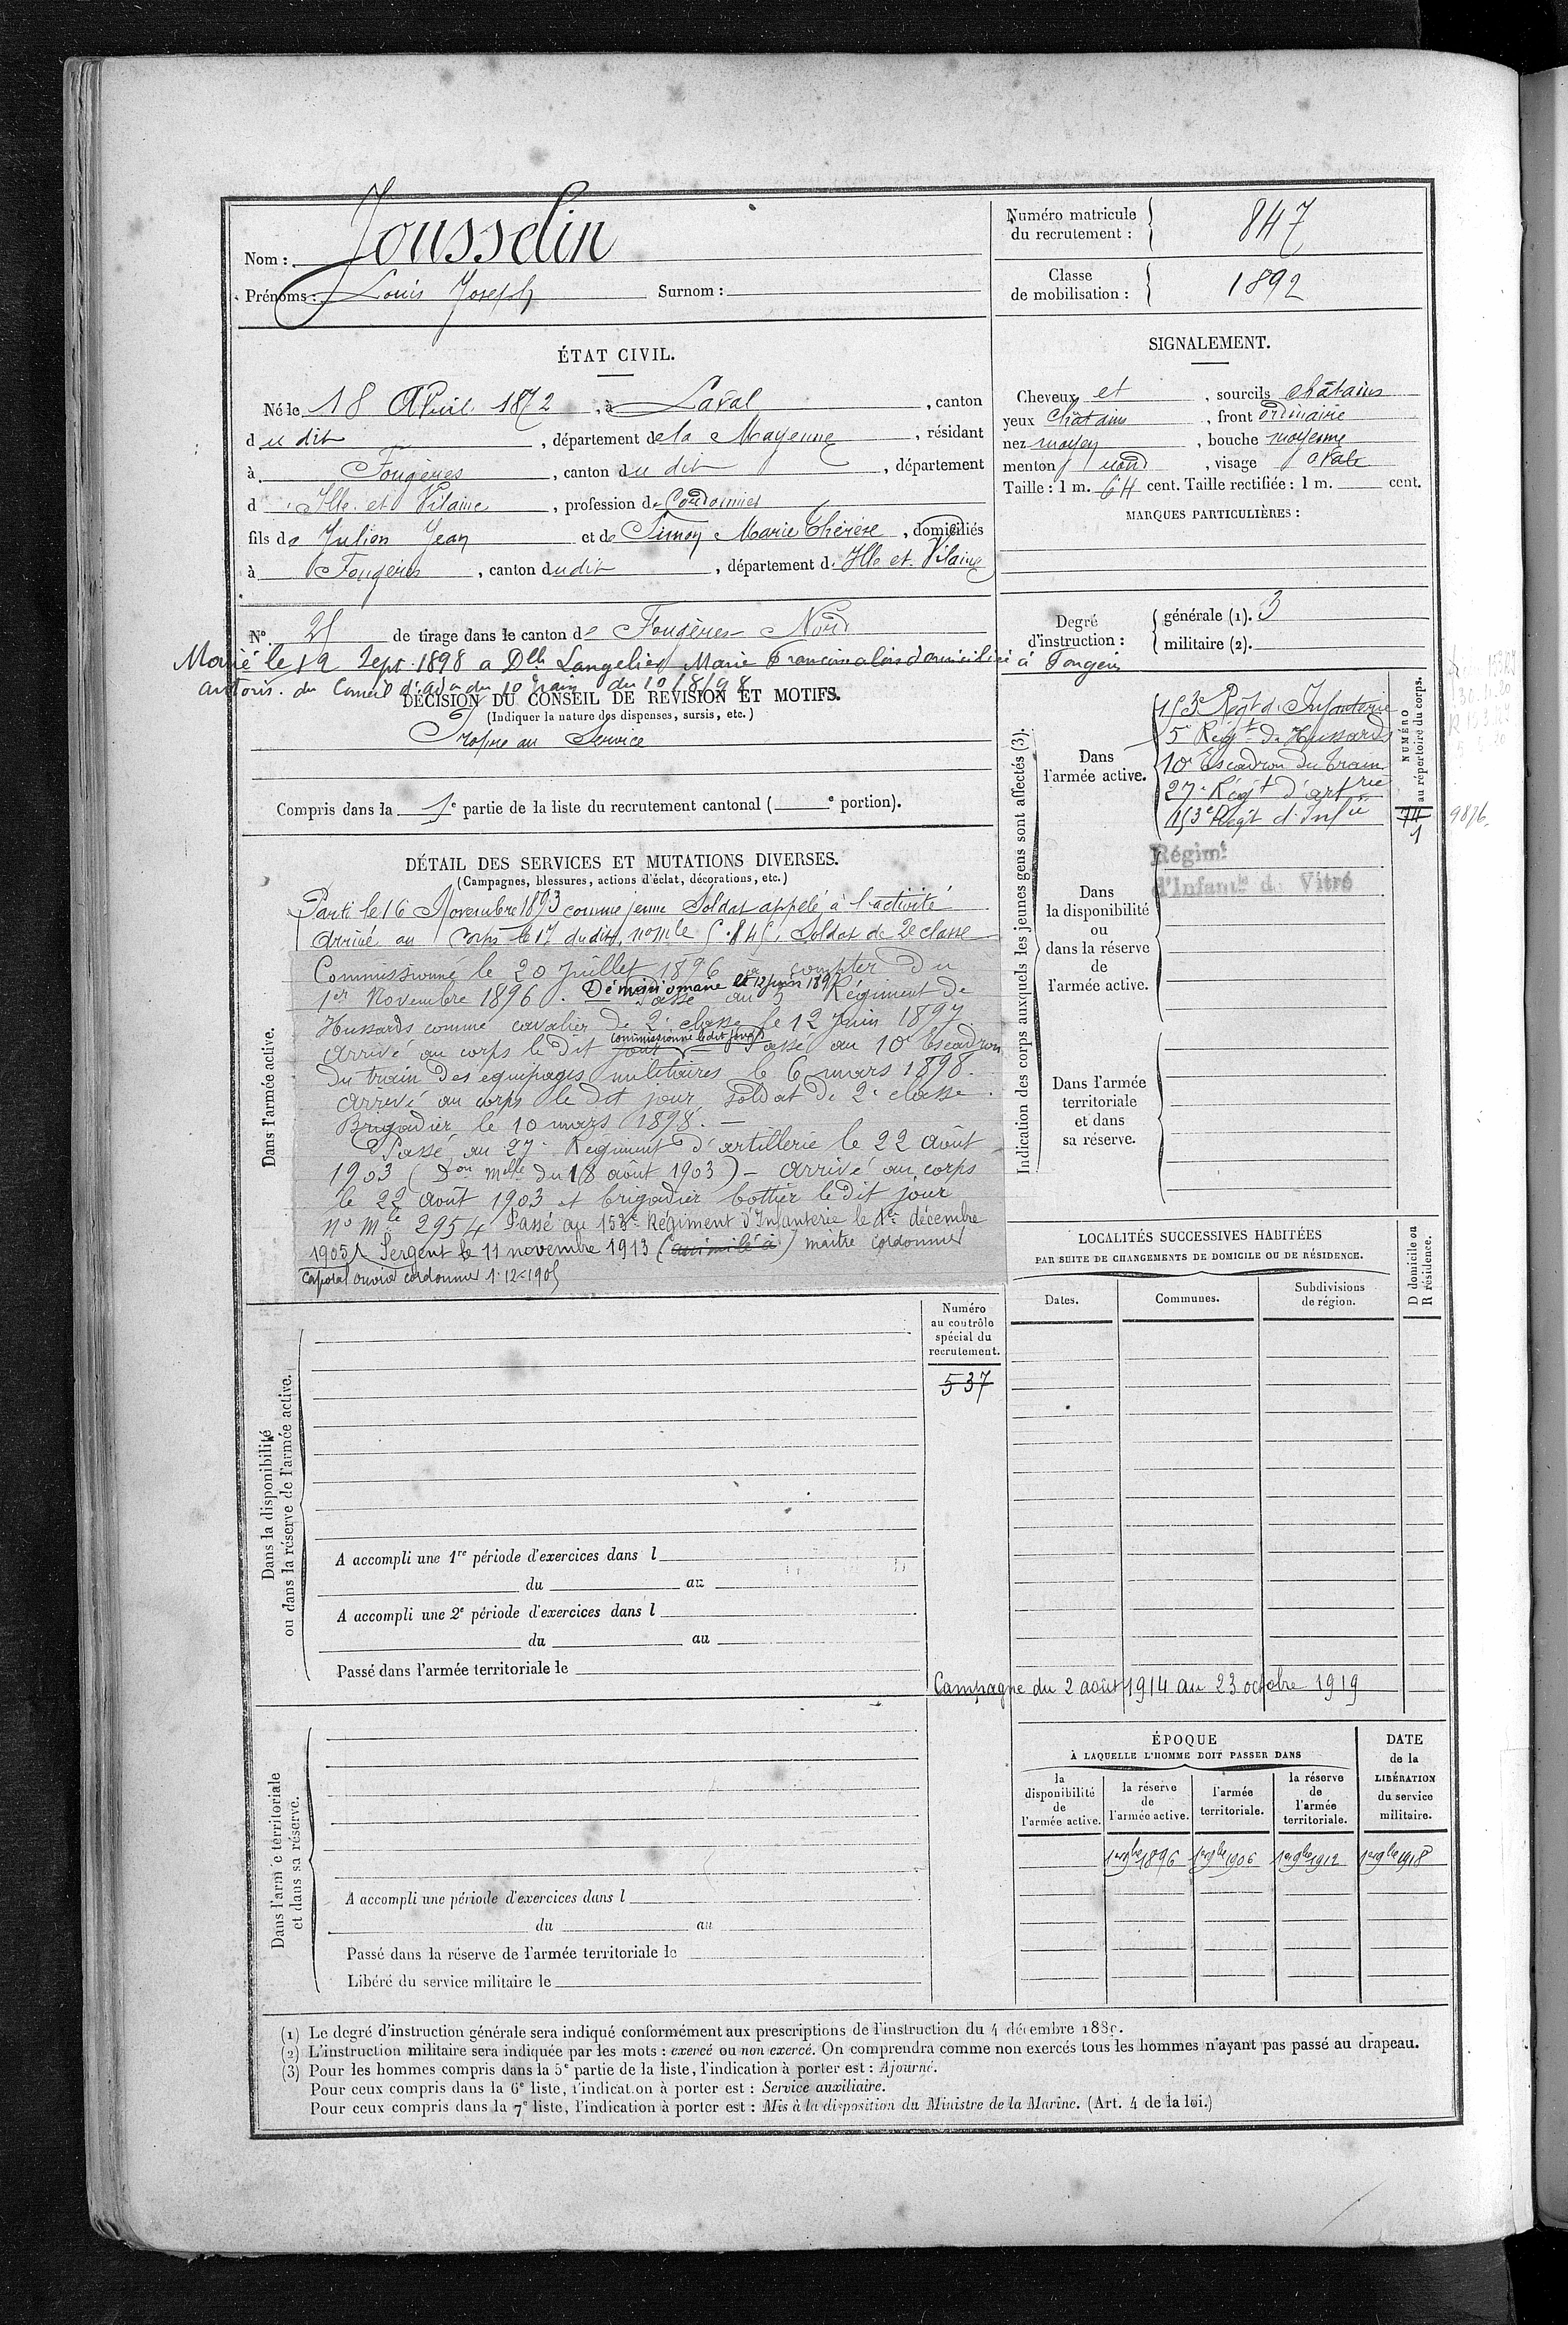 Nom : Jousselin
Prénoms : Louis Joseph Surnom :
Numéro matricule
du recrutement :
847
Classe
de mobilisation :
1892
ÉTAT CIVIL.
Né le 18 Avril 1872, à Laval, canton
du dit, département de la Mayenne, résidant
à Fougères, canton du dit, département
d'Ille et Vilaine, profession de Cordonnier
fils de Julien Jean et de Simon Marie Thérèse, domiciliés
à Fougères, canton du dit, département d'Ille et Vilaine
SIGNALEMENT.
Cheveux et, sourcils châtains
yeux châtains, front ordinaire
nez moyen, bouche moyenne
menton rond, visage ovale
Taille : 1 m. 64 cent. Taille rectifiée : 1 m. cent.
MARQUES PARTICULIÈRES :
N° 25 de tirage dans le canton de Fougères Nord
Marié le 12 Sept 1898 a Dlle Langelier Marie Francine alors domiciliée à Fougères
autoris. du Conseil d'adon du 10 train du 10/8/98
Degré
d'instruction :
générale (1). 3
militaire (2).
DÉCISION DU CONSEIL DE REVISION ET MOTIFS.
(Indiquer la nature des dispenses, sursis, etc.)
Propre au Service
Compris dans la 1e partie de la liste du recrutement cantonal ( e portion).
DÉTAIL DES SERVICES ET MUTATIONS DIVERSES.
(Campagnes, blessures, actions d'éclat, décorations, etc.)
Dans l'armée active.
Parti le 16 Novembre 1893 comme jeune Soldat appelé à l'activité
arrivé au Corps le 17 dudit, no mle 5.845, Soldat de 2e classe
Commissionné le 20 Juillet 1896 à compter du
1er Novembre 1896. Démissionnaire le 12 juin 1897 Passé au 5e Régiment de
Hussards comme cavalier de 2e classe le 12 Juin 1897
arrivé au corps le dit jour commissionné le dit jour Passé au 10e Escadron
du train des équipages militaires le 6 mars 1898.
arrivé au corps le dit jour soldat de 2e classe.
Brigadier le 10 mars 1898. —
Passé au 27e Régiment d'artillerie le 22 août
1903 (Don mlle du 18 août 1903) – arrivé au corps
le 22 août 1903 et brigadier bottier le dit jour
no Mle 2954 Passé au 153e Régiment d'Infanterie le 1er décembre
1905 Sergent le 11 novembre 1913 (assimilé à) maitre cordonnier
Caporal ouvrier cordonnier 1.12.1905
Indication des corps auxquels les jeunes gens sont affectés (3).
Dans
l'armée active.
153e Régt d'Infanterie
5e Régt de Hussards
10e Escadron du train
27e Régt d'artrie
153e Régt d'Infie
NUMÉRO
au répertoire du corps.
74
1
9876
Dans
la disponibilité
ou
dans la réserve
de
l'armée active.
Régimt
d'Infantie de Vitré
Dans l'armée
territoriale
et dans
sa réserve.
LOCALITÉS SUCCESSIVES HABITÉES
PAR SUITE DE CHANGEMENTS DE DOMICILE OU DE RÉSIDENCE.
Dates.
Communes.
Subdivisions
de région.
D domicile ou
R résidence.
Numéro
au contrôle
spécial du
recrutement.
537
Dans la disponibilité
ou dans la réserve de l'armée active.
A accompli une 1re période d'exercices dans l
du au
A accompli une 2e période d'exercices dans l
du au
Passé dans l'armée territoriale le
Campagne du 2 août 1914 au 23 octobre 1919
Dans l'armée territoriale
et dans sa réserve.
A accompli une période d'exercices dans l
du au
Passé dans la réserve de l'armée territoriale le
Libéré du service militaire le
ÉPOQUE
À LAQUELLE L'HOMME DOIT PASSER DANS
la
disponibilité
de
l'armée active.
la réserve
de
l'armée active.
l'armée
territoriale.
la réserve
de
l'armée
territoriale.
DATE
de la
LIBÉRATION
du service
militaire.
1er 9bre 1896 1er 9bre 1906 1er 9bre 1912 1er 9bre 1918
(1) Le degré d'instruction générale sera indiqué conformément aux prescriptions de l'instruction du 4 décembre 1889.
(2) L'instruction militaire sera indiquée par les mots : exercé ou non exercé. On comprendra comme non exercés tous les hommes n'ayant pas passé au drapeau.
(3) Pour les hommes compris dans la 5e partie de la liste, l'indication à porter est : Ajourné.
Pour ceux compris dans la 6e liste, l'indication à porter est : Service auxiliaire.
Pour ceux compris dans la 7e liste, l'indication à porter est : Mis à la disposition du Ministre de la Marine. (Art. 4 de la loi.)